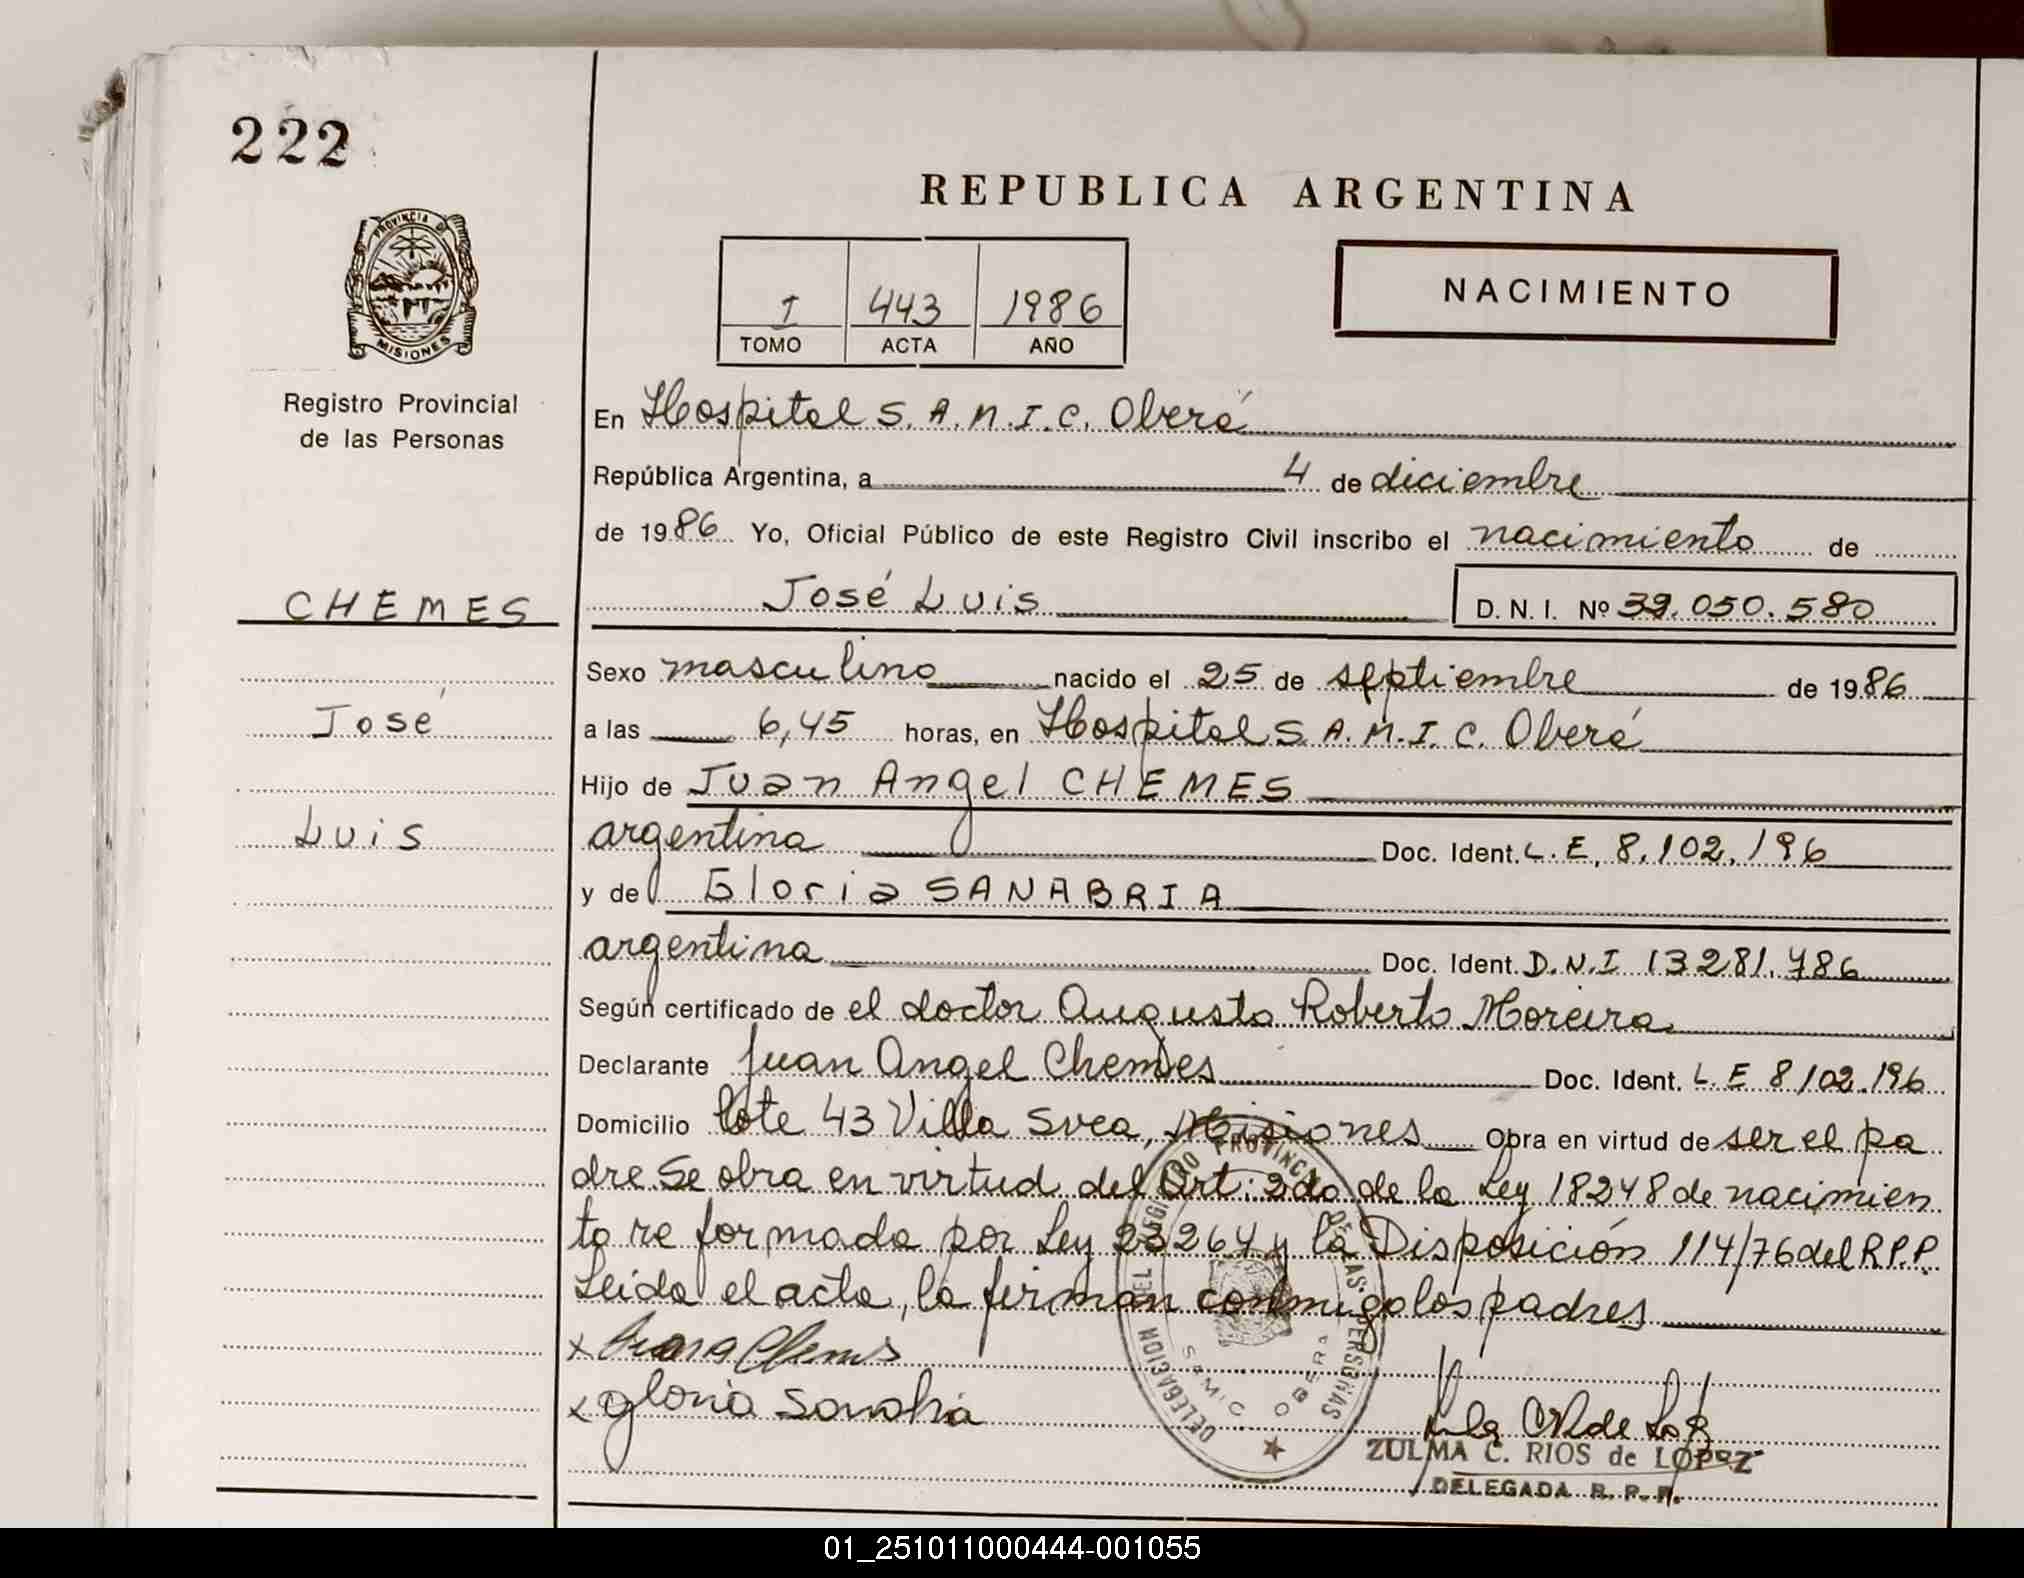 222
REPUBLICA ARGENTINA
PROVINCIA DE
MISIONES
I 443 1986
TOMO ACTA AÑO
NACIMIENTO
Registro Provincial
de las Personas
En Hospital S.A.M.I.C. Oberá
República Argentina, a 4 de diciembre
de 1986 Yo, Oficial Público de este Registro Civil inscribo el nacimiento de
CHEMES
José Luis D.N.I. Nº 32.050.580
Sexo masculino nacido el 25 de septiembre de 1986
José
a las 6,45 horas, en Hospital S.A.M.I.C. Oberá
Hijo de Juan Angel CHEMES
Luis
argentina Doc. Ident. L.E. 8.102.196
y de Gloria SANABRIA
argentina Doc. Ident. D.N.I 13281.786
Según certificado de el doctor Augusto Roberto Moreira
Declarante Juan Angel Chemes Doc. Ident. L.E 8102.196
Domicilio lote 43 Villa Svea, Misiones Obra en virtud de ser el pa
dre. Se obra en virtud del Art: 2do de la Ley 18248 de nacimien
to re formada por Ley 23264 y la Disposición 114/76 del R.P.P.
Leida el acta, la firman conmigo los padres
x Chemes
x gloria Sanabria
DELEGACION DEL REGISTRO PROVINCIAL DE LAS PERSONAS
SAMIC OBERA
ZULMA C. RIOS de LOPEZ
DELEGADA R. P. P.
01_251011000444-001055